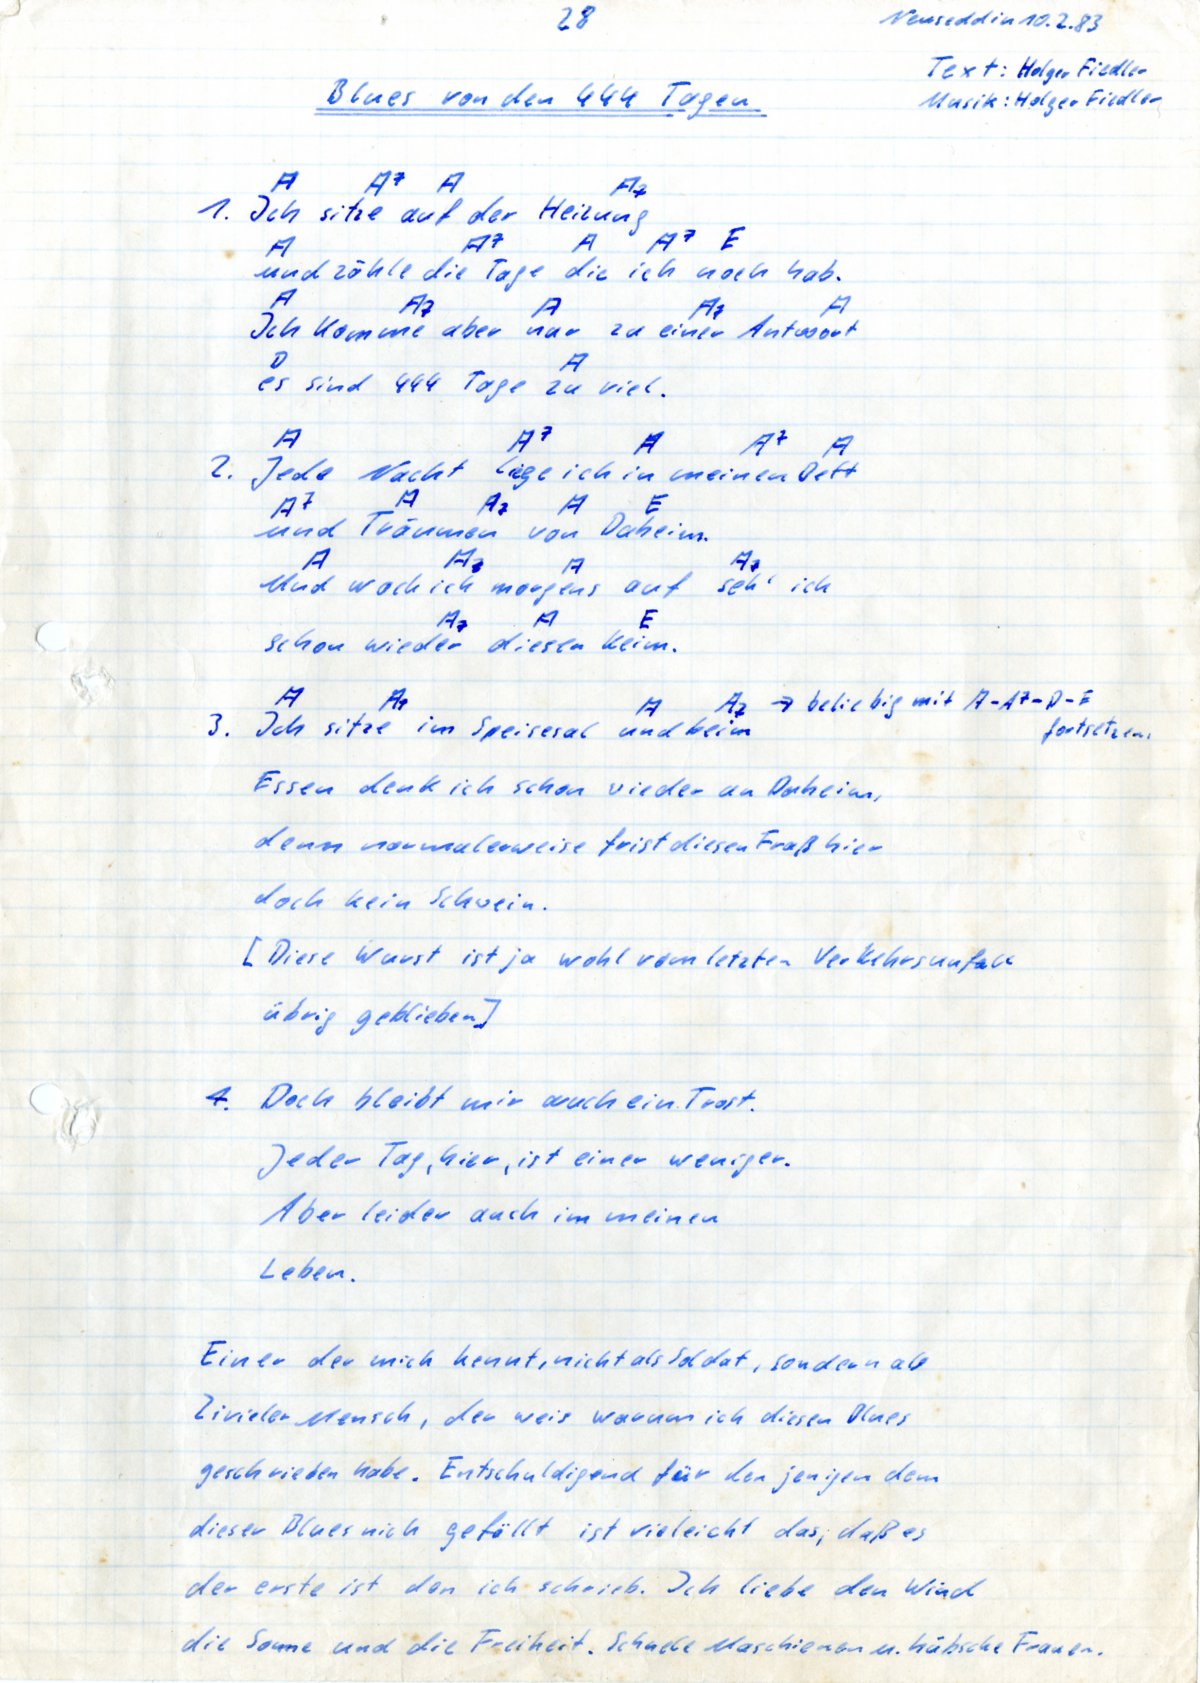 28
Neuseddin 10.2.83
Text: Holger Fiedler
Musik: Holger Fiedler
Blues von den 444 Tagen
A A7 A A7
1. Ich sitze auf der Heizung
A A7 A A7 E
und zähle die Tage die ich noch hab.
A A7 A A7 A
Ich komme aber nur zu einer Antwort
D A
es sind 444 Tage zu viel.
A A7 A A7 A
2. Jede Nacht liege ich in meinen Bett
A7 A A7 A E
und Träumen von Daheim.
A A7 A A7
Und wach ich morgens auf seh' ich
A7 A E
schon wieder diesen Keim.
A A7 A A7 → beliebig mit A-A7-D-E
fortsetzen.
3. Ich sitze im Speisesal und beim
Essen denk ich schon wieder an Daheim,
denn normalerweise frist diesen Fraß hier
doch kein Schwein.
[Diese Wurst ist ja wohl vom letzten Verkehrsunfall
übrig geblieben]
4. Doch bleibt mir auch ein Trost.
Jeder Tag, hier, ist einer weniger.
Aber leider auch im meinen
Leben.
Einer der mich kennt, nicht als Soldat, sondern als
Zivieler Mensch, der weis warum ich diesen Blues
geschrieben habe. Entschuldigend für den jenigen dem
dieser Blues nich gefällt ist vieleicht das, daß es
der erste ist den ich schrieb. Ich liebe den Wind
die Sonne und die Freiheit. Schnelle Maschienen u. hübsche Frauen.